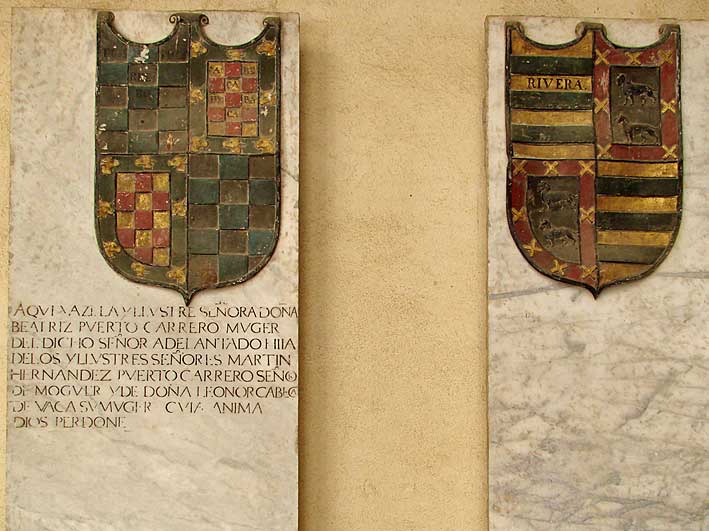 RIVERA
AQVI YAZE LA YLLVSTRE SEÑORA DOÑA
BEATRIZ PVERTO CARRERO MVGER
DEL DICHO SEÑOR ADELANTADO HIIA
DE LOS YLLVSTRES SEÑORES MARTIN
HERNANDEZ PVERTO CARRERO SEÑOR
DE MOGVER Y DE DOÑA LEONOR CABEÇA
DE VACA SV MVGER CVIA ANIMA
DIOS PERDONE